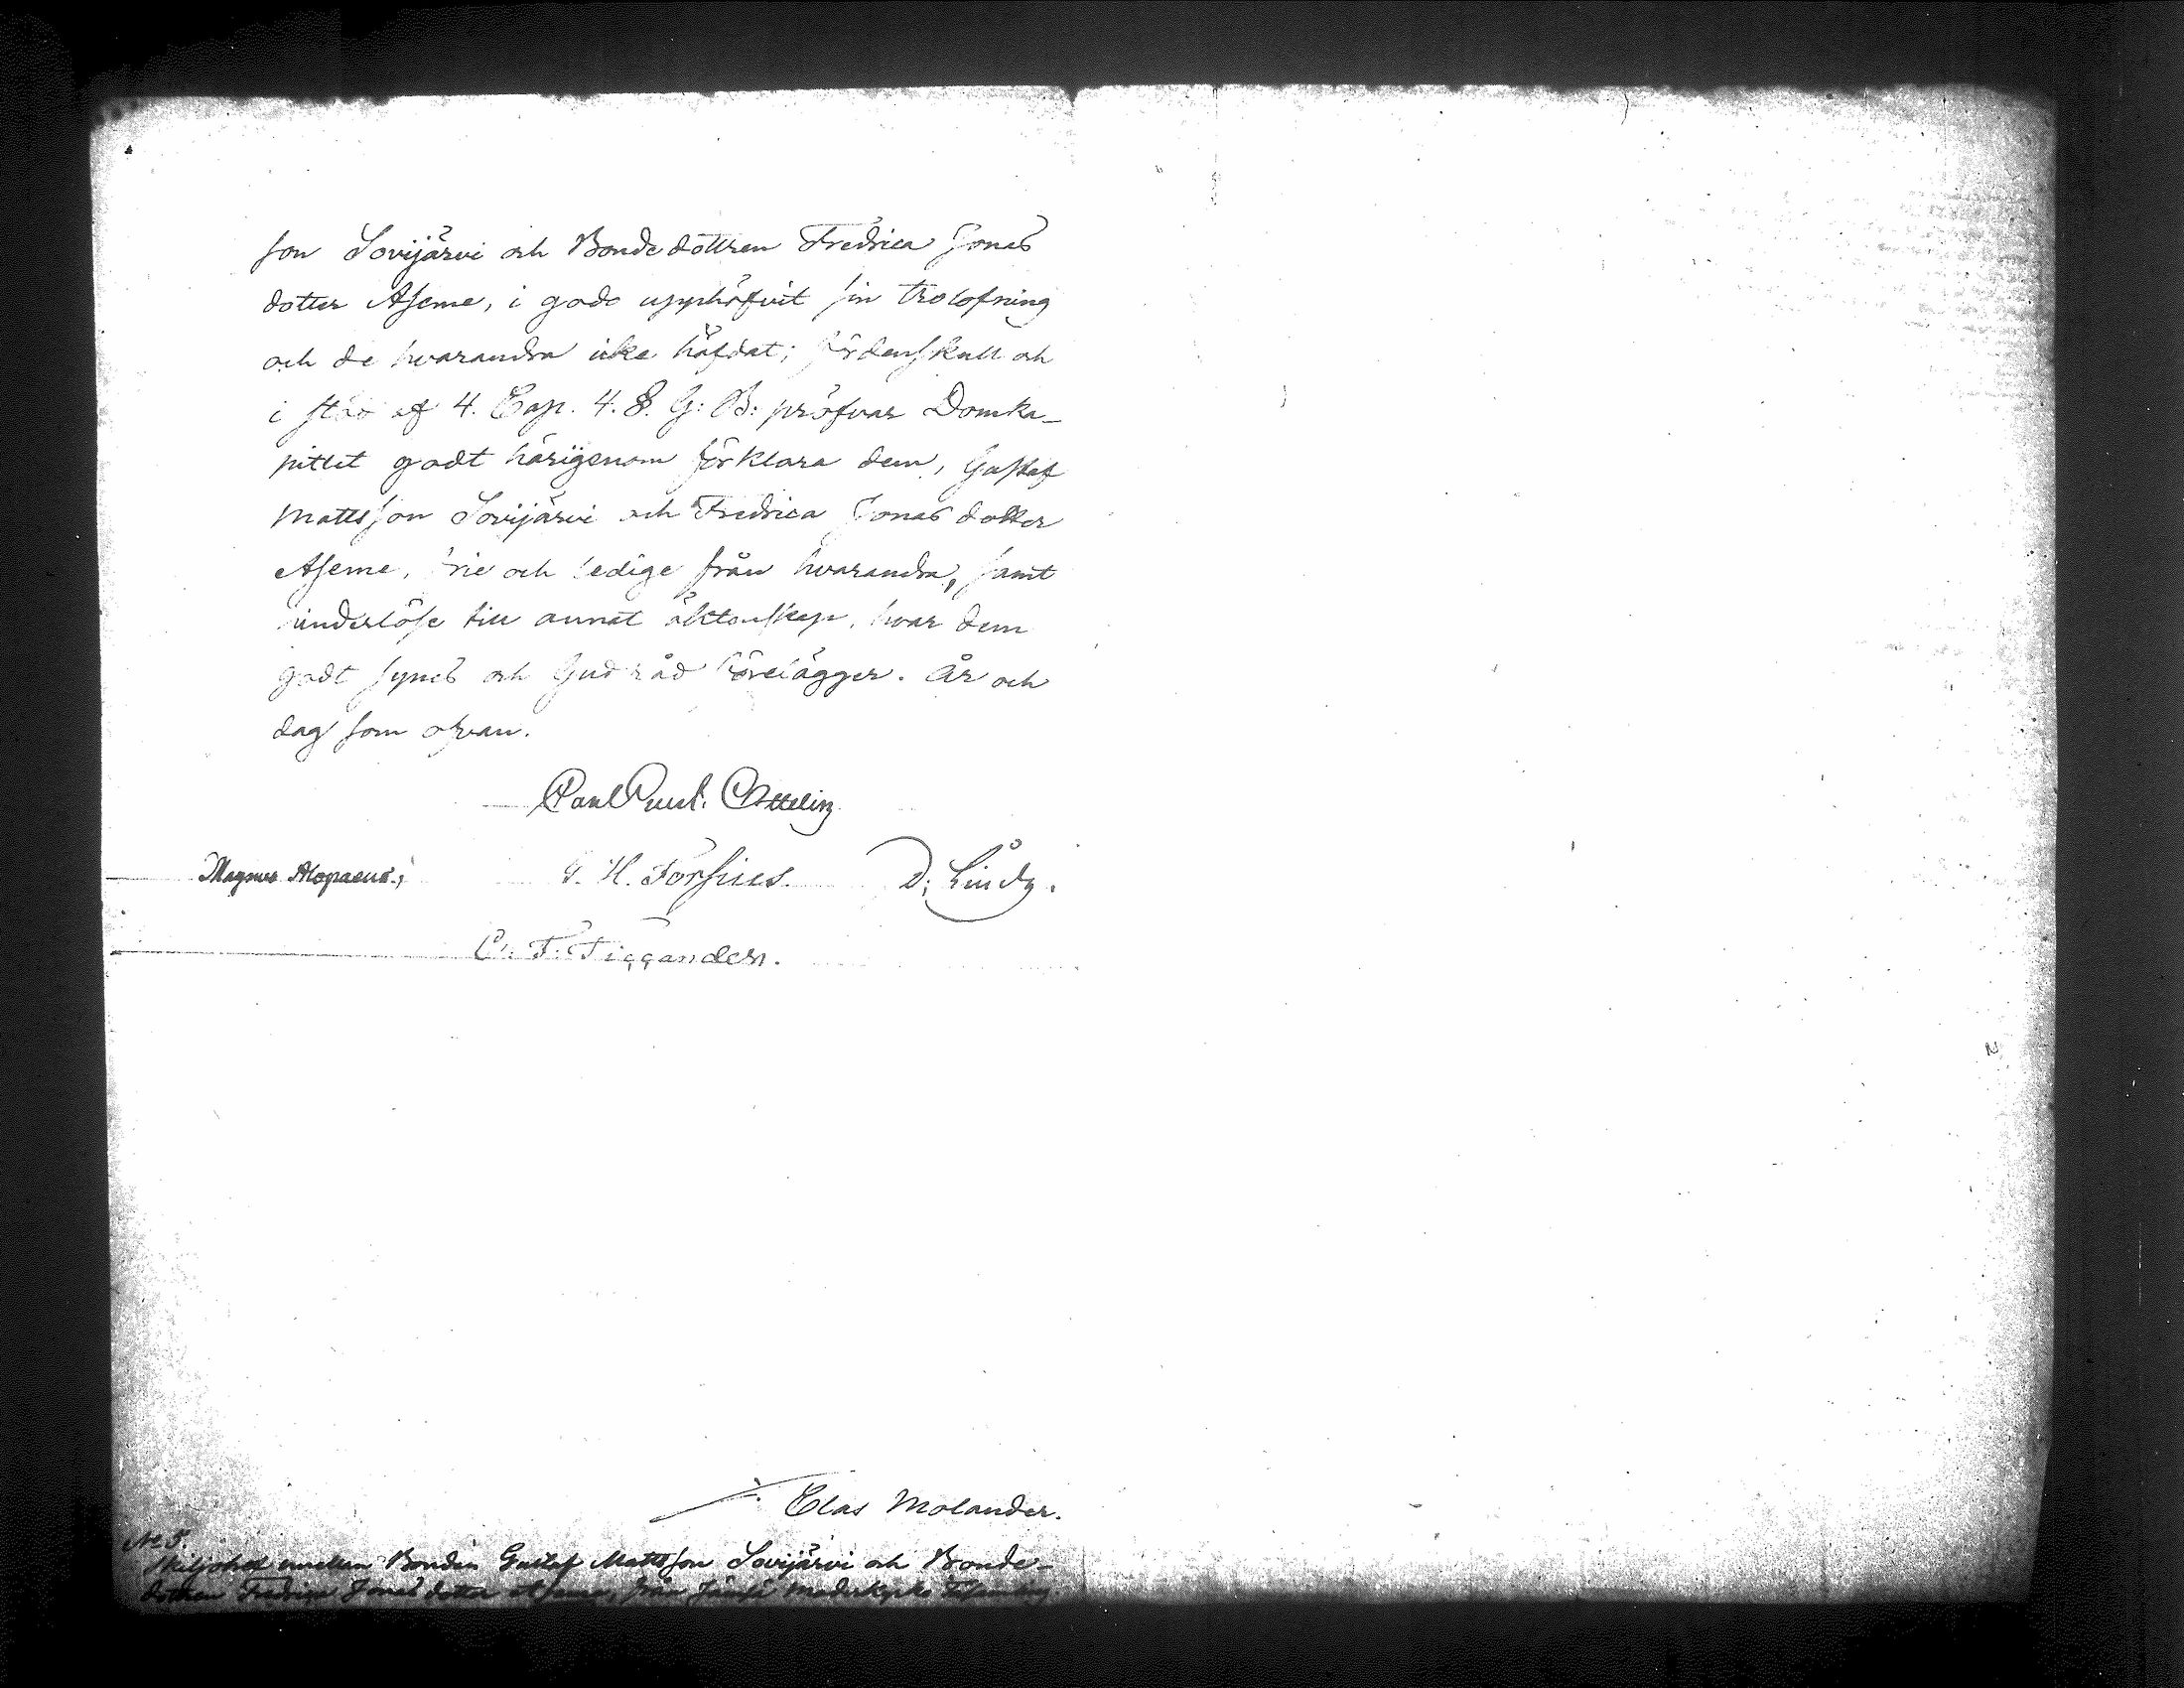 son Sovijärvi och Bondedottren Fredrica Jonas
dotter Aseme, i godo upphäfvit sin trolofning
och de hvarandra icke häfdat; fördenskull och
i stöd af 4. Cap. 4. §. G: B: pröfvar Domka-
pitlet godt härigenom förklara dem, Gustaf
Mattsson Sovijärvi och Fredrica Jonasdotter
Aseme, frie och ledige från hvarandra, samt
hinderlöse till annat äktenskap, hvar dem
godt synes och Gud råd förelägger. År och
dag som ofvan.
Carl Ottelin
Magnus Alopaeus. G. H. Forsius. D:
C. F. Tigganden.
Clas Molander.
No 5.
Skiljobref emellan Bonden Gustaf Mattsson Sovijärvi och Bonde-
dottren Fredrica Jonasdotter Aseme, från Jämsä Moderkyrko